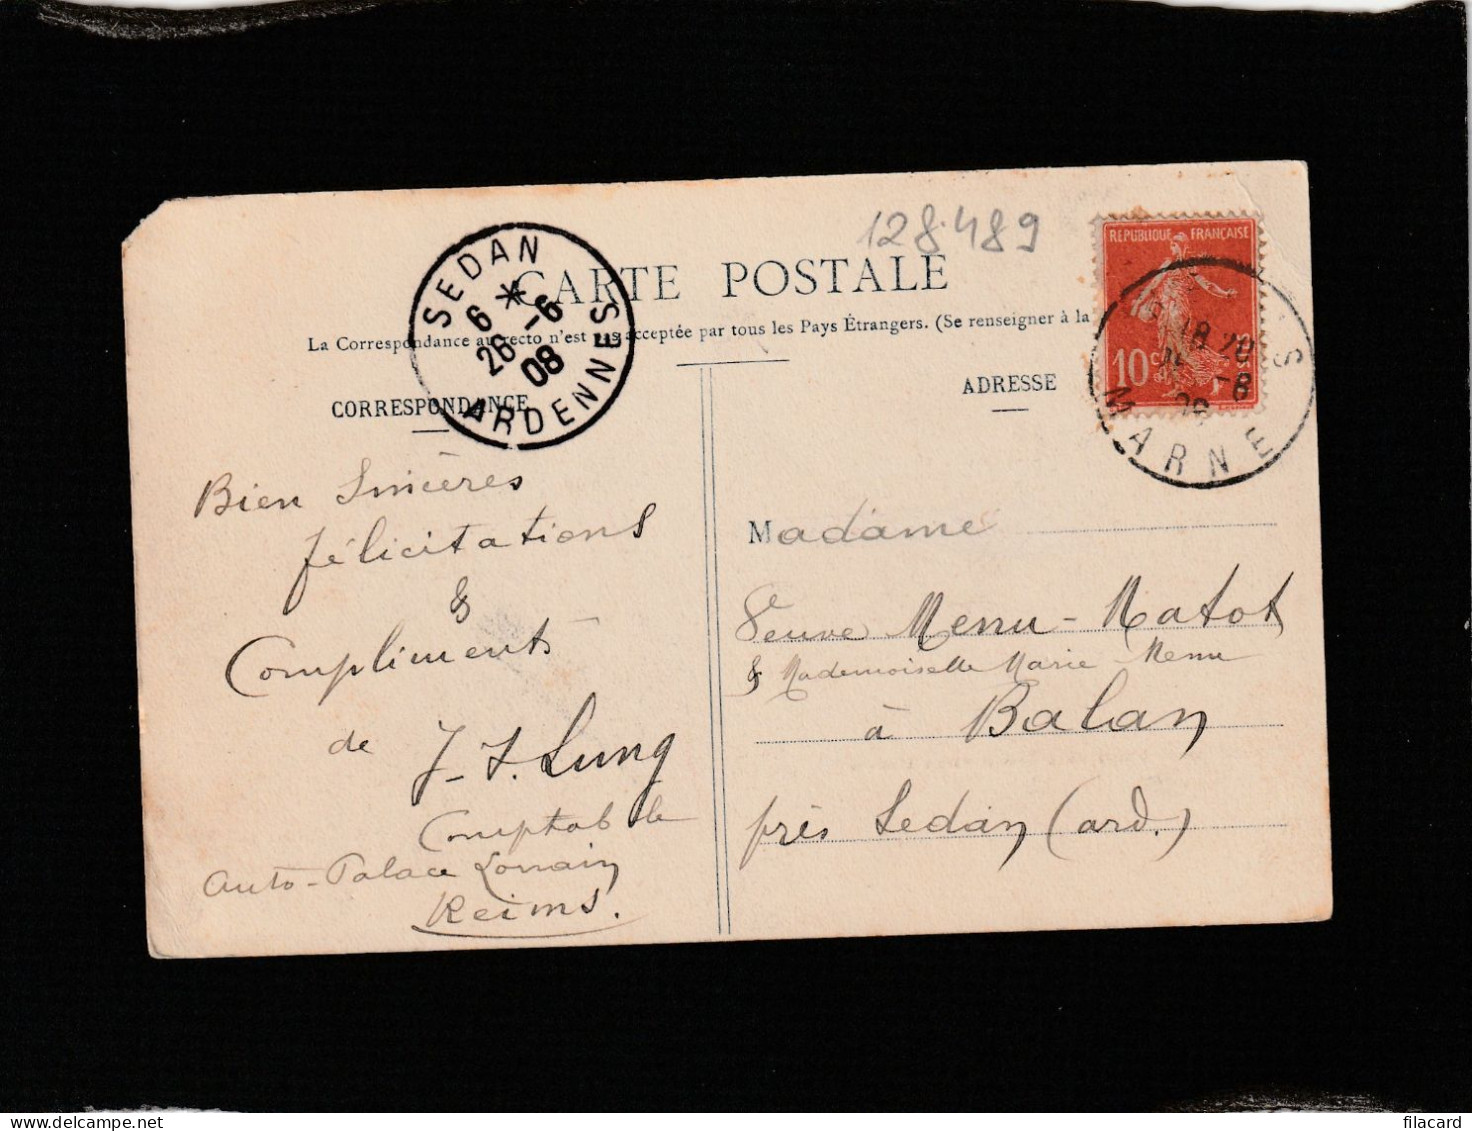 128.489
CARTE POSTALE
La Correspondance au recto n'est pas acceptée par tous les Pays Étrangers. (Se renseigner à la
SEDAN
6 *
26 -6
08
ARDENNES
RÉPUBLIQUE FRANÇAISE
10 c
MARNE
CORRESPONDANCE
ADRESSE
Bien Sincères
félicitations
&
Compliments
de J-J. Lung
Comptable
Auto-Palace Lorrain
Reims.
Madame
Veuve Menu-Matot
& Mademoiselle Marie Menu
à Balan
près Sedan (ard.)
filacard